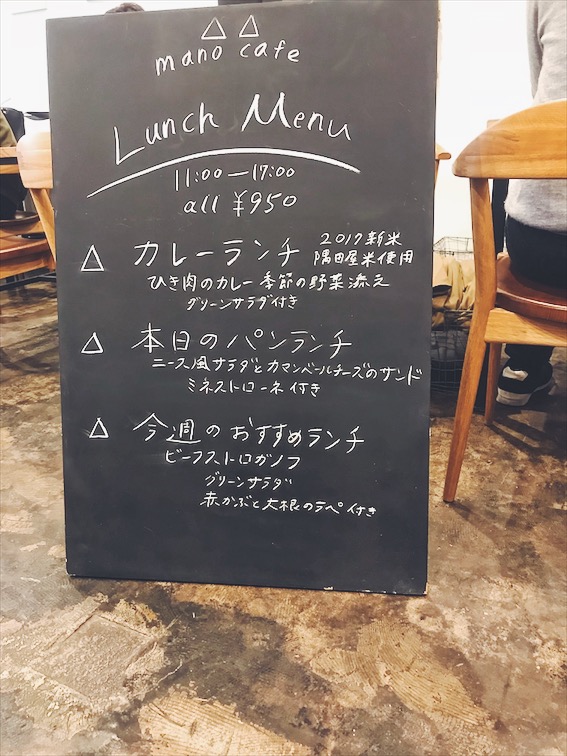 mano cafe
Lunch Menu
11:00ー17:00
all ¥950
△ カレーランチ 2017新米
隅田屋米使用
ひき肉のカレー 季節の野菜添え
グリーンサラダ付き
△ 本日のパンランチ
ニース風サラダとカマンベールチーズのサンド
ミネストローネ付き
△ 今週のおすすめランチ
ビーフストロガノフ
グリーンサラダ
赤かぶと大根のラペ付き